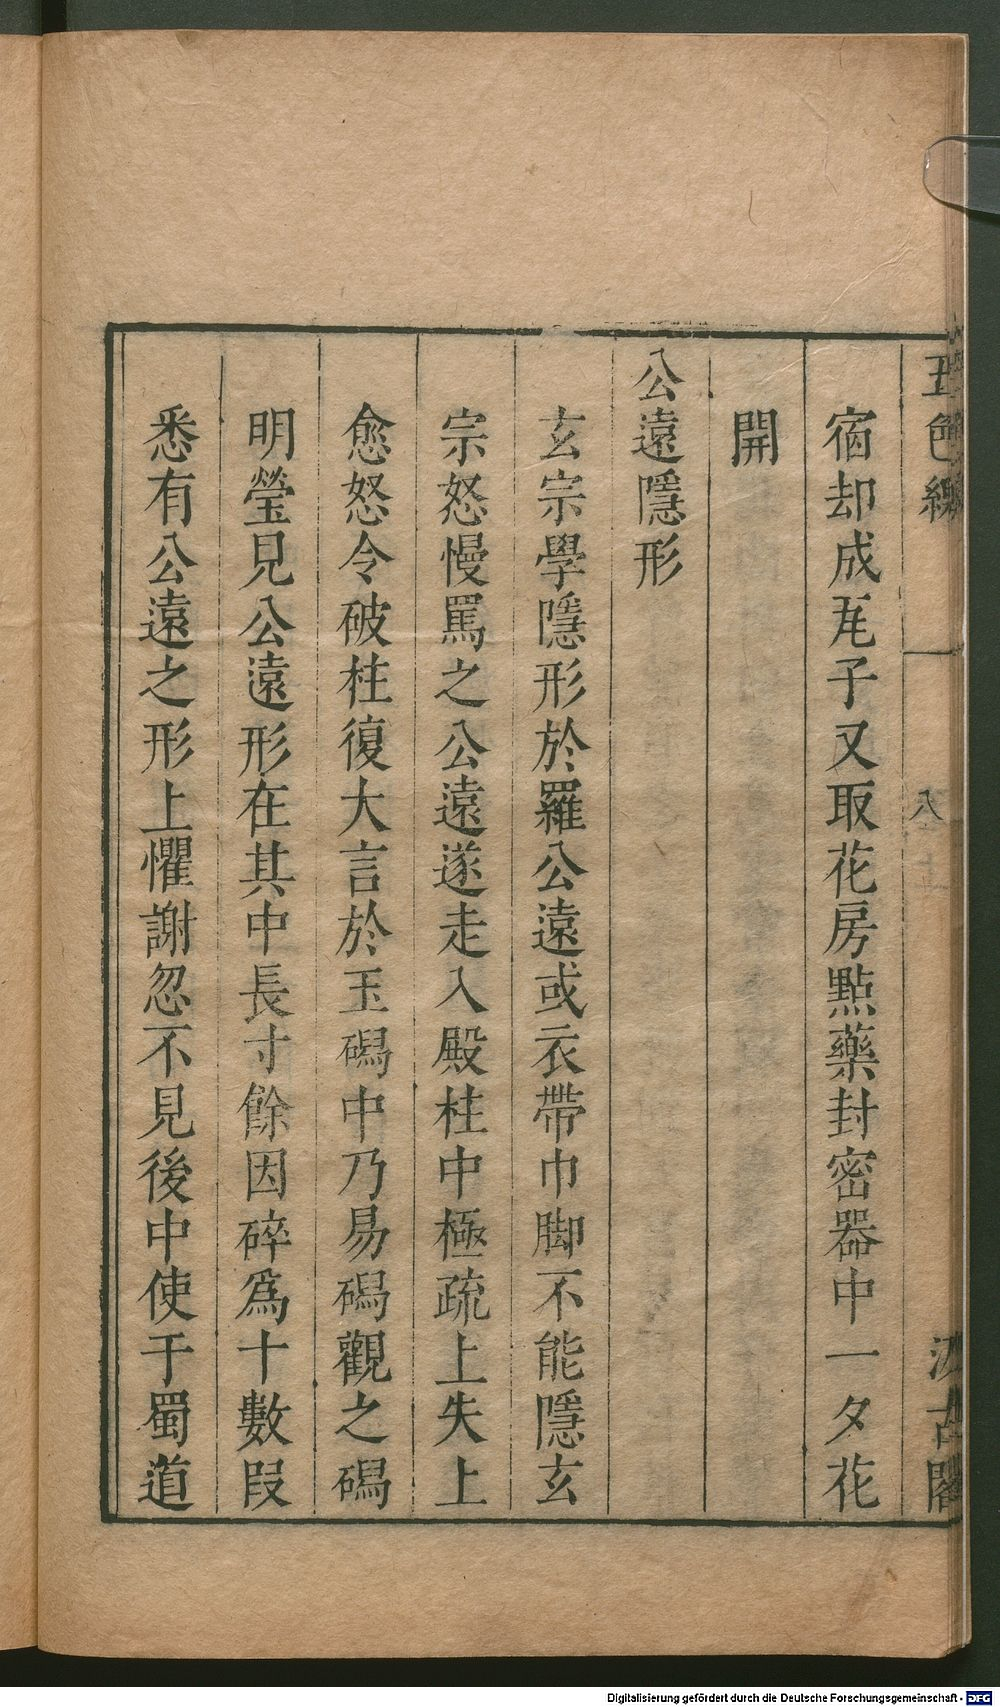 五色線
八
汲古閣
宿却成瓦子又取花房點藥封密器中一夕花
開
公遠隱形
玄宗學隱形於羅公遠或衣帶巾脚不能隱玄
宗怒慢罵之公遠遂走入殿柱中極疏上失上
愈怒令破柱復大言於玉碣中乃易碣觀之碣
明瑩見公遠形在其中長寸餘因碎爲十數段
悉有公遠之形上懼謝忽不見後中使于蜀道
Digitalisierung gefördert durch die Deutsche Forschungsgemeinschaft - DFG